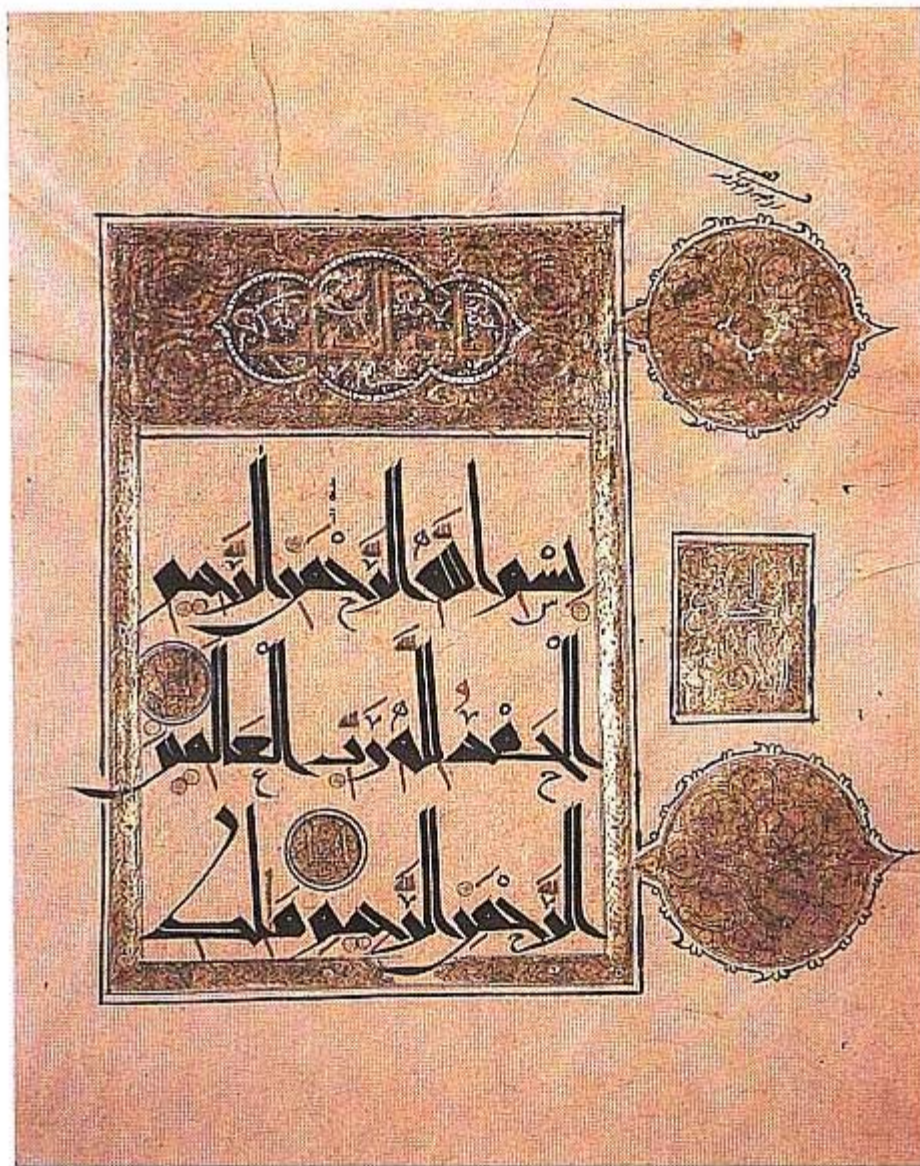 بِسْمِ اللَّهِ الرَّحْمَنِ الرَّحِيمِ
الْحَمْدُ لِلَّهِ رَبِّ الْعَالَمِينَ
الرَّحْمَنِ الرَّحِيمِ مَلِكِ